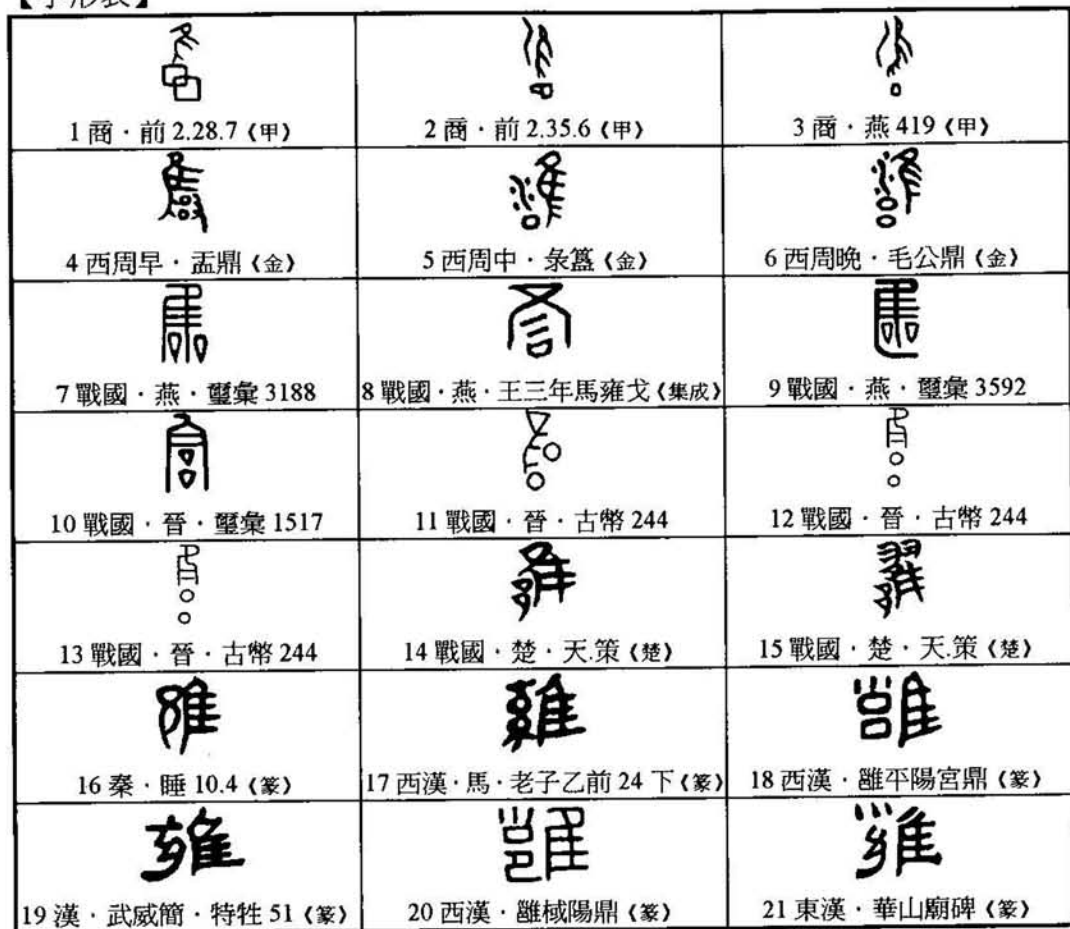 【字形表】
1 商．前 2.28.7《甲》 2 商．前 2.35.6《甲》 3 商．燕 419《甲》
4 西周早．盂鼎《金》 5 西周中．彔簋《金》 6 西周晚．毛公鼎《金》
7 戰國．燕．璽彙 3188 8 戰國．燕．王三年馬雍戈《集成》 9 戰國．燕．璽彙 3592
10 戰國．晉．璽彙 1517 11 戰國．晉．古幣 244 12 戰國．晉．古幣 244
13 戰國．晉．古幣 244 14 戰國．楚．天.策《楚》 15 戰國．楚．天.策《楚》
16 秦．睡 10.4《篆》 17 西漢．馬．老子乙前 24 下《篆》 18 西漢．雝平陽宮鼎《篆》
19 漢．武威簡．特牲 51《篆》 20 西漢．雝棫陽鼎《篆》 21 東漢．華山廟碑《篆》